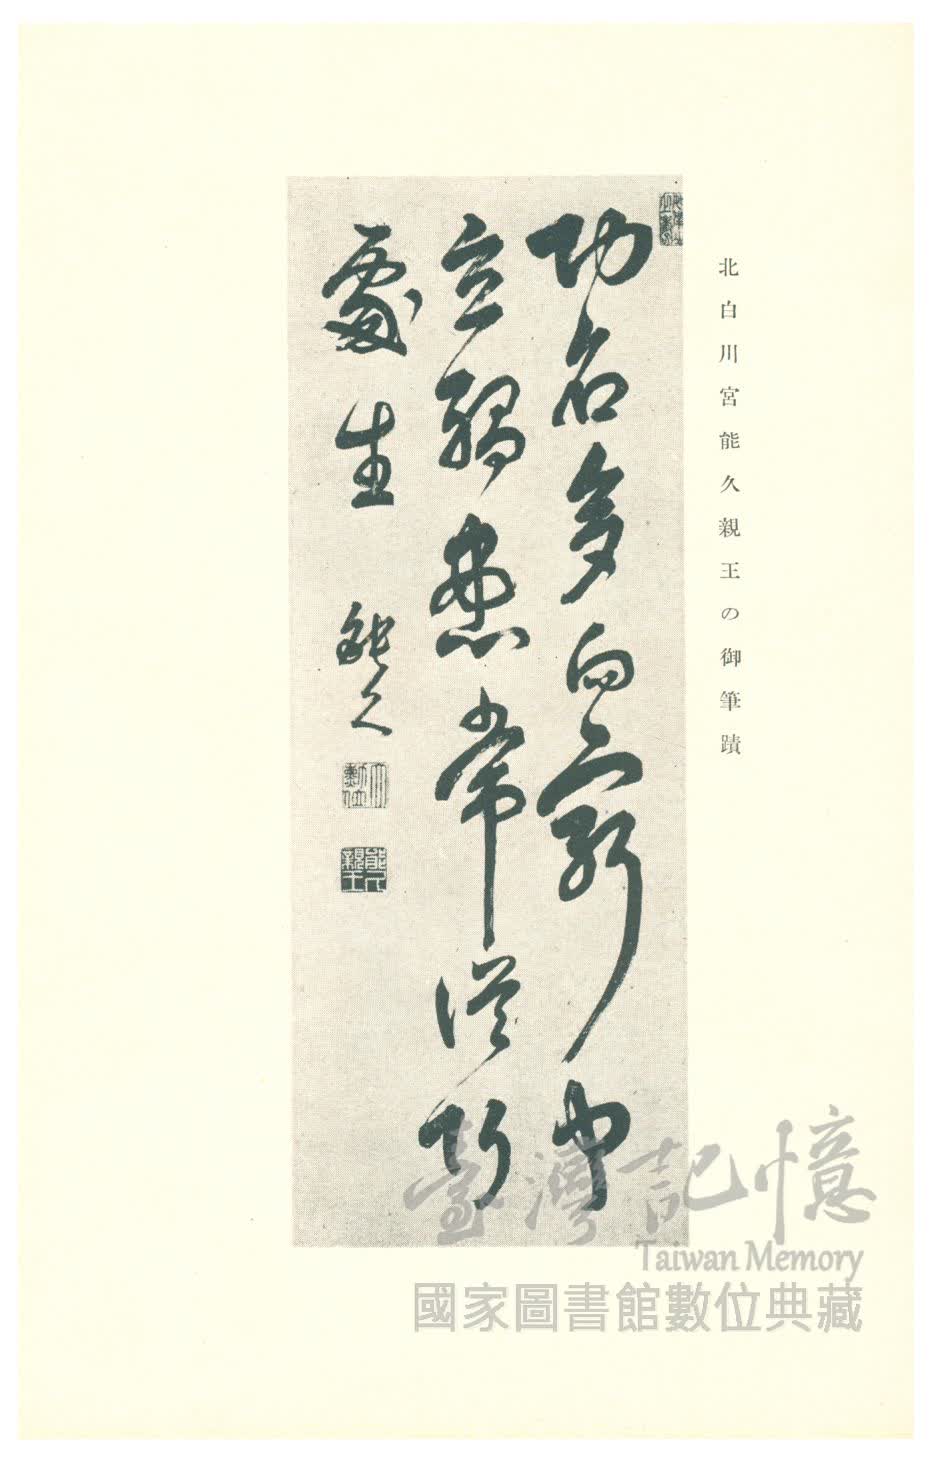 北白川宮能久親王の御筆蹟
功名多向窮中
立禍患常從巧
處生
能久
大勳位
能久親王
臺灣記憶
Taiwan Memory
國家圖書館數位典藏